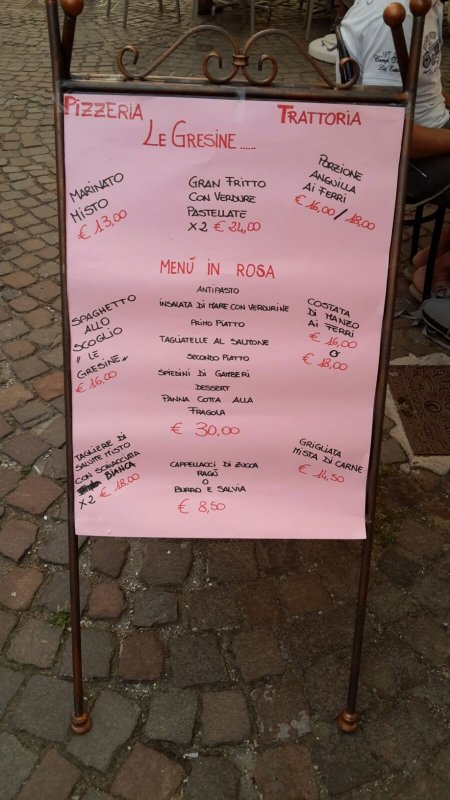 PIZZERIA
TRATTORIA
LE GRESINE......
MARINATO
MISTO
€ 13,00
GRAN FRITTO
CON VERDURE
PASTELLATE
X2 € 24,00
PORZIONE
ANGUILLA
AI FERRI
€ 16,00 / 18,00
MENÚ IN ROSA
ANTIPASTO
INSALATA DI MARE CON VERDURINE
PRIMO PIATTO
TAGLIATELLE AL SALMONE
SECONDO PIATTO
SPIEDINI DI GAMBERI
DESSERT
PANNA COTTA ALLA
FRAGOLA
€ 30,00
SPAGHETTO
ALLO
SCOGLIO
"LE
GRESINE"
€ 16,00
COSTATA
DI MANZO
AI FERRI
€ 16,00
O
€ 18,00
TAGLIERE DI
SALUMI MISTO
CON SCHIACCIATA
BIANCA
X2 € 18,00
CAPPELLACCI DI ZUCCA
RAGÙ
O
BURRO E SALVIA
€ 8,50
GRIGLIATA
MISTA DI CARNE
€ 14,50